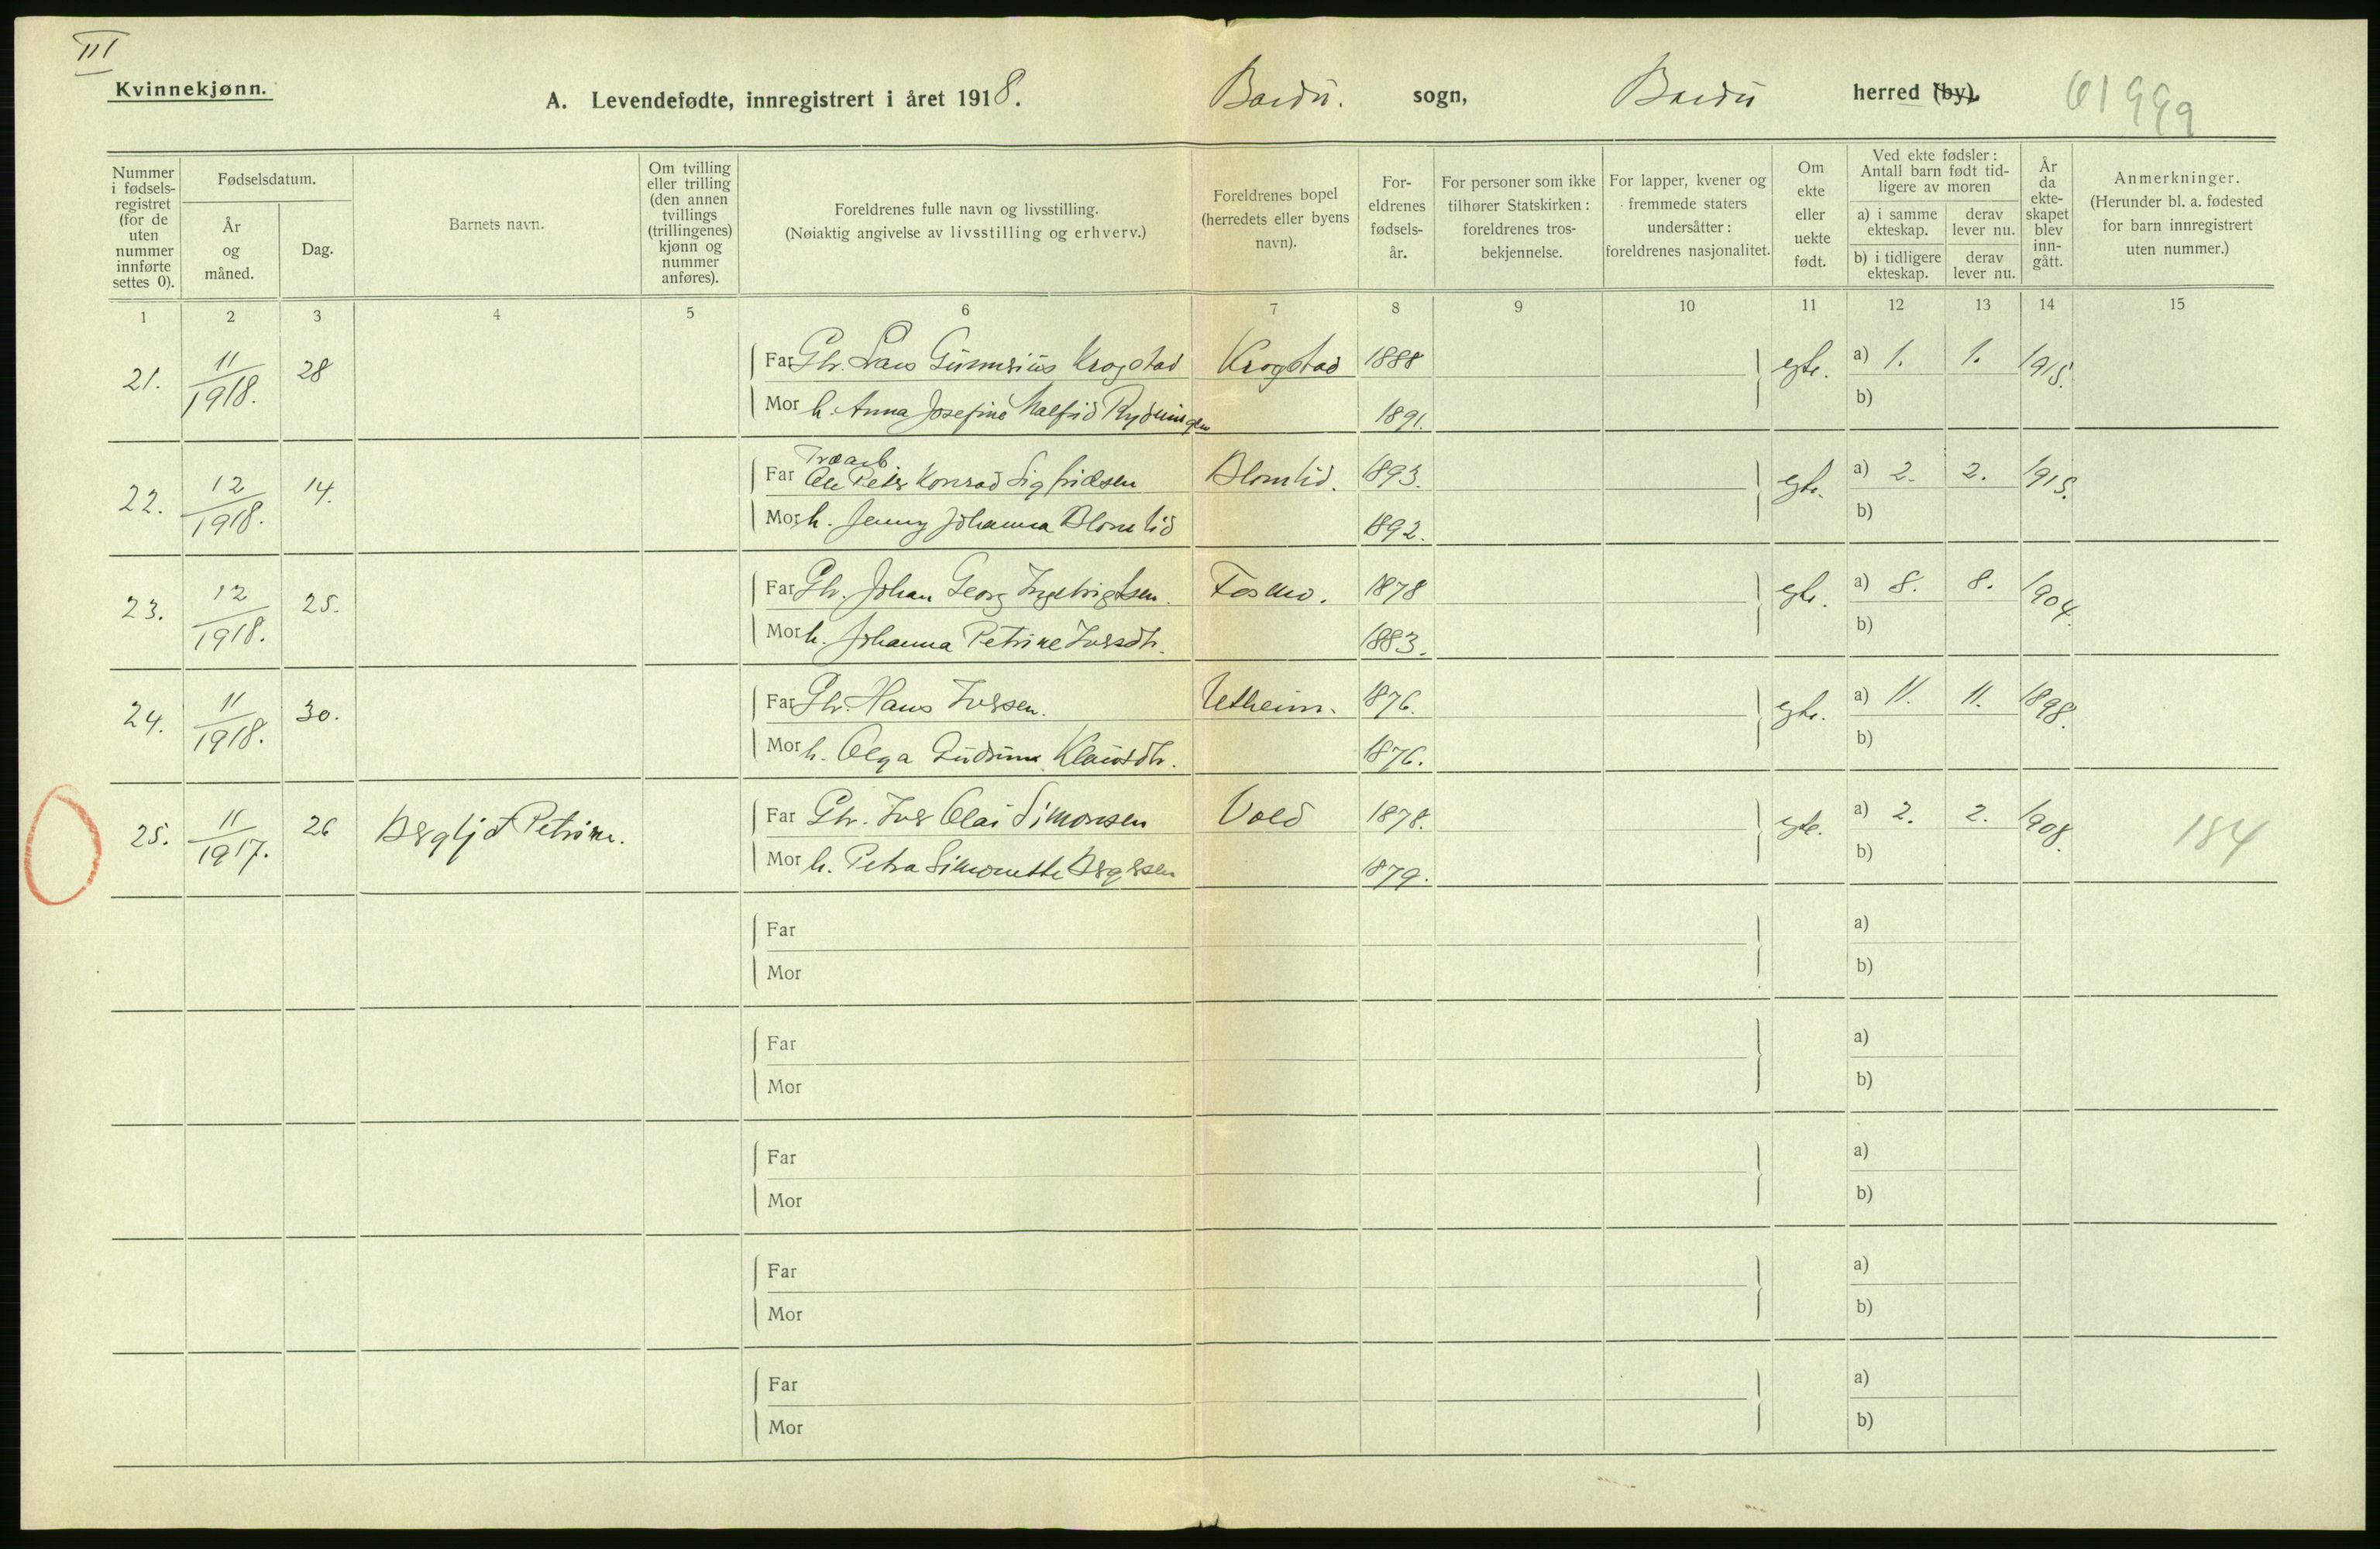 III
Kvinnekjønn.
A. Levendefødte, innregistrert i året 1918.
Bardu. sogn, Bardu herred (by).
61999
Nummer i fødsels-registret (for de uten nummer innførte settes 0).
Fødselsdatum.
År og måned.
Dag.
Barnets navn.
Om tvilling eller trilling (den annen tvillings (trillingenes) kjønn og nummer anføres).
Foreldrenes fulle navn og livsstilling.
(Nøiaktig angivelse av livsstilling og erhverv.)
Foreldrenes bopel (herredets eller byens navn).
For-eldrenes fødsels-år.
For personer som ikke tilhører Statskirken: foreldrenes tros-bekjennelse.
For lapper, kvener og fremmede staters undersåtter: foreldrenes nasjonalitet.
Om ekte eller uekte født.
Ved ekte fødsler: Antall barn født tid-ligere av moren
a) i samme ekteskap.
derav lever nu.
b) i tidligere ekteskap.
derav lever nu.
År da ekte-skapet blev inn-gått.
Anmerkninger.
(Herunder bl. a. fødested for barn innregistrert uten nummer.)
1 2 3 4 5 6 7 8 9 10 11 12 13 14 15
21. 11/1918. 28 Far Gbr. Lars Gunnerius Krogstad Krogstad 1888 egte. a) 1. 1. 1915.
Mor h. Anna Josefine Valfrid Rydningen 1891. b)
Træarb.
22. 12/1918. 14. Far Ole Peter Konrad Sigfridsen Blomlid. 1893. egte. a) 2. 2. 1915.
Mor h. Jenny Johanna Blomlid 1892. b)
23. 12/1918. 25. Far Gbr. Johan Georg Ingebrigtsen. Fosmo. 1878 egte. a) 8. 8. 1904.
Mor h. Johanna Petrine Iversdtr. 1883. b)
24. 11/1918. 30. Far Gbr. Hans Iversen. Utheim. 1876. egte. a) 11. 11. 1898.
Mor h. Olga Gudrun Klausdtr. 1876. b)
25. 11/1917. 26 Bergljot Petrine. Far Gbr. Iver Olai Simonsen Vold 1878. egte. a) 2. 2. 1908. 184
Mor h. Petra Simonette Bergersen 1879. b)
Far a)
Mor b)
Far a)
Mor b)
Far a)
Mor b)
Far a)
Mor b)
Far a)
Mor b)